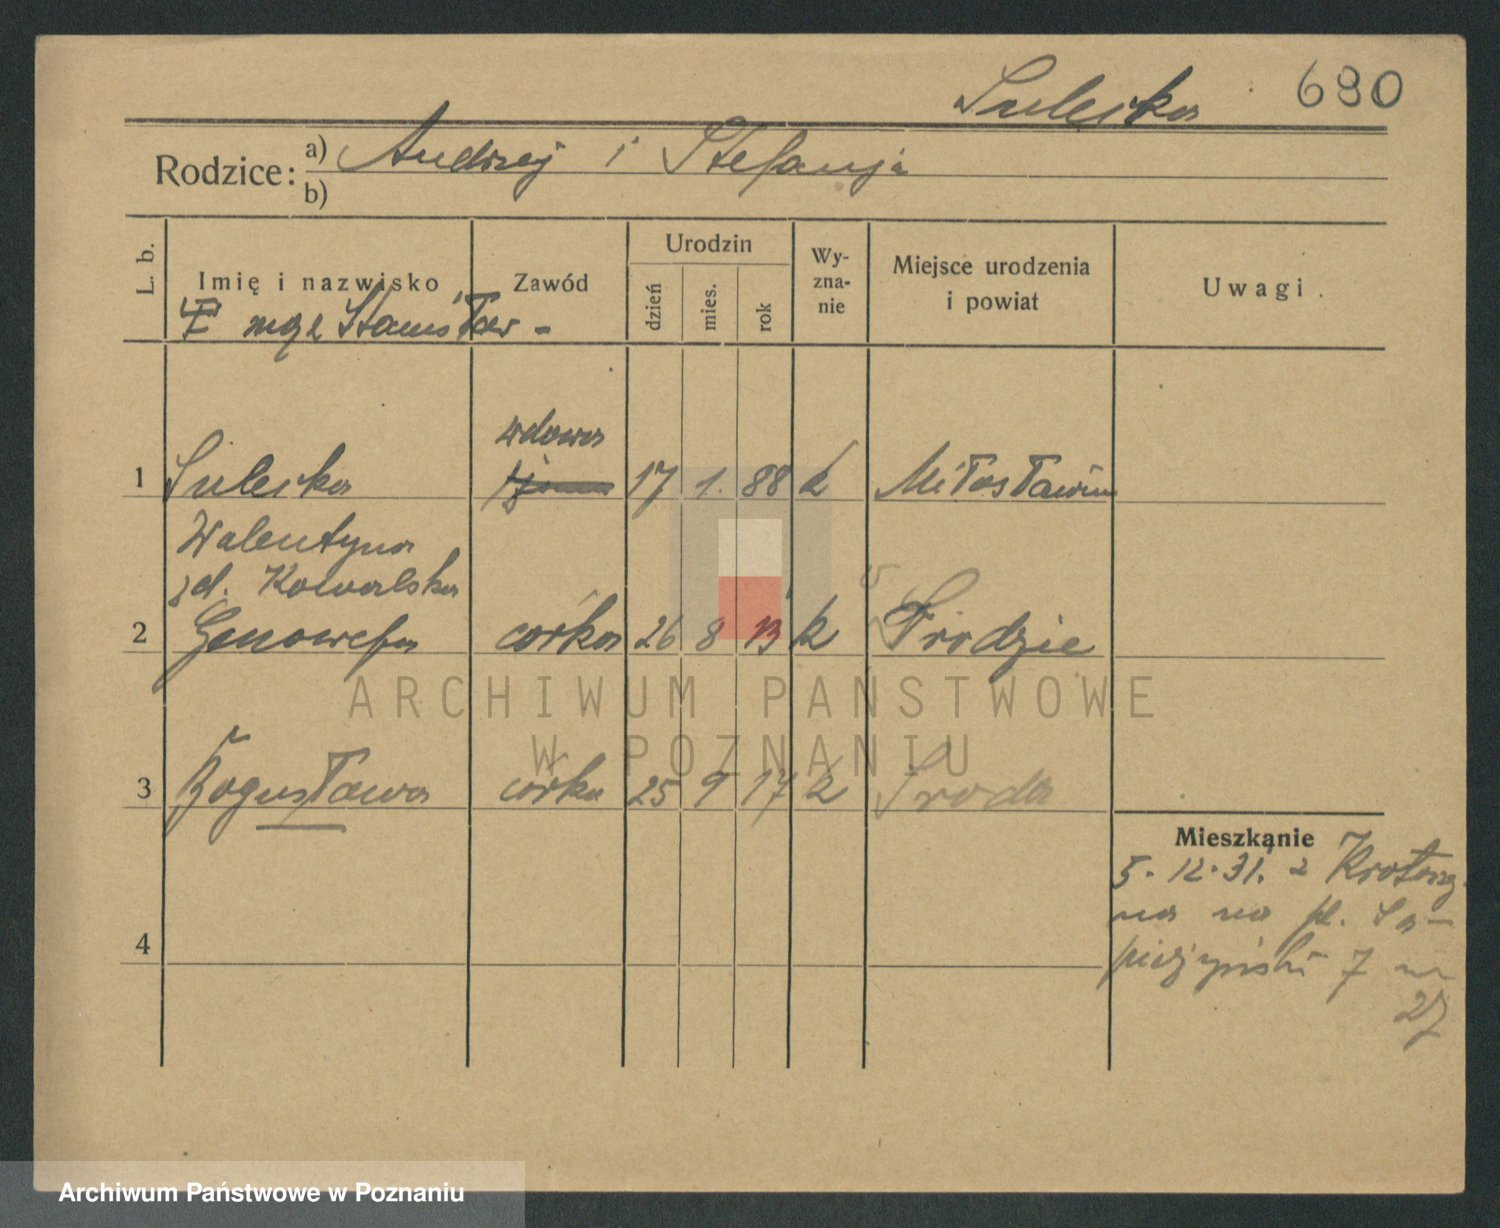 Sulecka 690
Rodzice: a) Andrzej i Stefanja
b)
L. b.
Imię i nazwisko
Zawód
Urodzin
dzień
mies.
rok
Wy-
zna-
nie
Miejsce urodzenia
i powiat
Uwagi.
mąż Stanisław -
wdowa
1 Sulecka 17 1. 88 k Miłosławiu
Walentyna
zd. Kowalska
2 Genowefa córka 26 8 13 k Środzie
3 Bogusława córka 25 9 17 k Środa
4
Mieszkanie
5.12.31. z Krotoszy-
na na pl. Sa-
pieżyński 7 m
27
ARCHIWUM PAŃSTWOWE
W POZNANIU
Archiwum Państwowe w Poznaniu